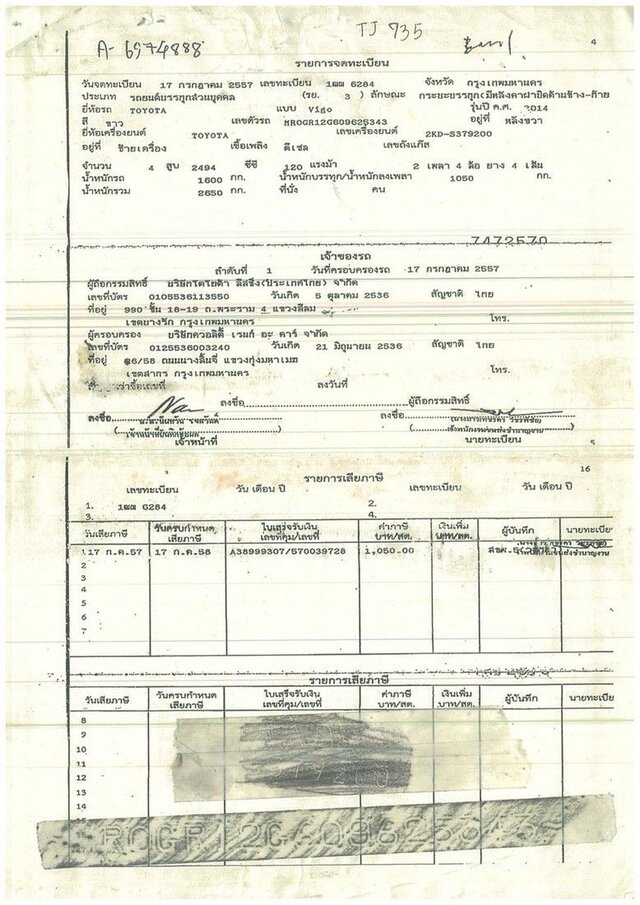 TJ 735
A- 6974888
4
รายการจดทะเบียน
วันจดทะเบียน 17 กรกฎาคม 2557 เลขทะเบียน 1ฒผ 6284 จังหวัด กรุงเทพมหานคร
ประเภท รถยนต์บรรทุกส่วนบุคคล (รย. 3 ) ลักษณะ กระยะบรรทุก(มีหลังคาฝาปิดด้านข้าง-ท้าย
ยี่ห้อรถ TOYOTA แบบ Vigo รุ่นปี ค.ศ. 2014
สี ขาว เลขตัวรถ MR0GR12G609625343 อยู่ที่ หลังขวา
ยี่ห้อเครื่องยนต์ TOYOTA เลขเครื่องยนต์ 2KD-S379200
อยู่ที่ ซ้ายเครื่อง เชื้อเพลิง ดีเซล เลขถังแก๊ส
จำนวน 4 สูบ 2494 ซีซี 120 แรงม้า 2 เพลา 4 ล้อ ยาง 4 เส้น
น้ำหนักรถ 1600 กก. น้ำหนักบรรทุก/น้ำหนักลงเพลา 1050 กก.
น้ำหนักรวม 2650 กก. ที่นั่ง คน
7472570
เจ้าของรถ
ลำดับที่ 1 วันที่ครอบครองรถ 17 กรกฎาคม 2557
ผู้ถือกรรมสิทธิ์ บริษัทโตโยต้า ลีสซิ่ง(ประเทศไทย) จำกัด
เลขที่บัตร 0105536113550 วันเกิด 5 ตุลาคม 2536 สัญชาติ ไทย
ที่อยู่ 990 ชั้น 18-19 ถ.พระราม 4 แขวงสีลม
เขตบางรัก กรุงเทพมหานคร โทร.
ผู้ครอบครอง บริษัทควอลิตี้ เรนท์ อะ คาร์ จำกัด
เลขที่บัตร 0125536003240 วันเกิด 21 มิถุนายน 2536 สัญชาติ ไทย
ที่อยู่ 26/58 ถนนนางลิ้นจี่ แขวงทุ่งมหาเมฆ
เขตสาทร กรุงเทพมหานคร โทร.
เช่าซื้อเลขที่ ลงวันที่
ลงชื่อ ผู้ถือกรรมสิทธิ์
ลงชื่อ ลงชื่อ
เจ้าหน้าที่ นายทะเบียน
16
รายการเสียภาษี
เลขทะเบียน วัน เดือน ปี เลขทะเบียน วัน เดือน ปี
1. 1ฒผ 6284 2.
3. 4.
วันเสียภาษี วันครบกำหนดเสียภาษี ใบเสร็จรับเงินเลขที่คุม/เลขที่ ค่าภาษีบาท/สต. เงินเพิ่มบาท/สต. ผู้บันทึก นายทะเบีย
1. 17 ก.ค.57 17 ก.ค.58 A38999307/570039728 1,050.00
2
3
4
5
6
7
รายการเสียภาษี
วันเสียภาษี วันครบกำหนดเสียภาษี ใบเสร็จรับเงินเลขที่คุม/เลขที่ ค่าภาษีบาท/สต. เงินเพิ่มบาท/สต. ผู้บันทึก นายทะเบีย
8
9
10
11
12
13
14